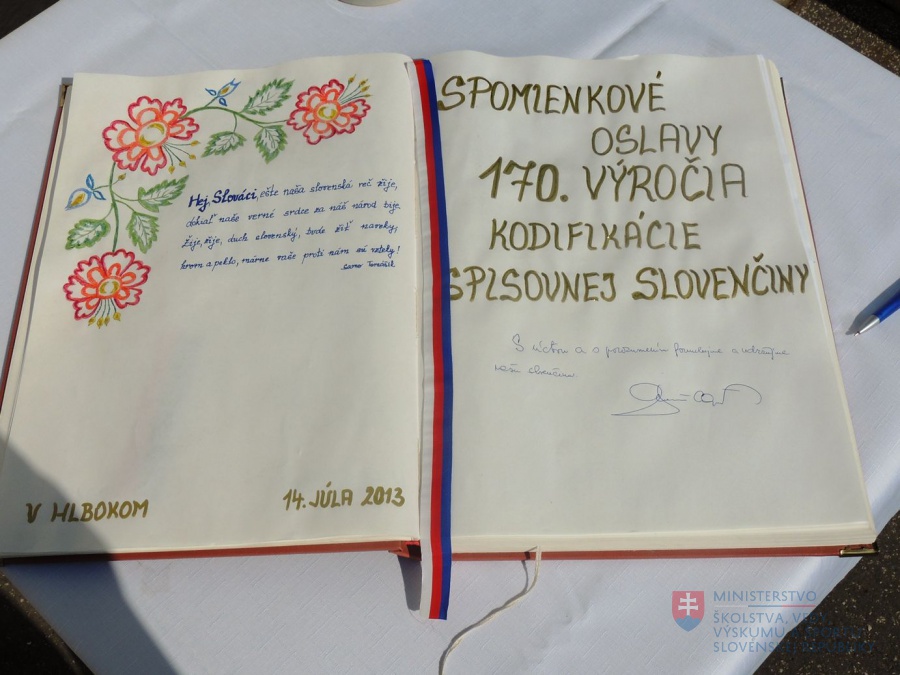 Hej, Slováci, ešte naša slovenská reč žije,
dokiaľ naše verné srdce za náš národ bije.
Žije, žije, duch slovenský, bude žiť naveky,
hrom a peklo, márne vaše proti nám sú vzteky!
Samo Tomášik
V HLBOKOM
14. JÚLA 2013
SPOMIENKOVÉ
OSLAVY
170. VÝROČIA
KODIFIKÁCIE
SPISOVNEJ SLOVENČINY
S úctou a s porozumením
MINISTERSTVO
ŠKOLSTVA, VEDY,
VÝSKUMU A ŠPORTU
SLOVENSKEJ REPUBLIKY